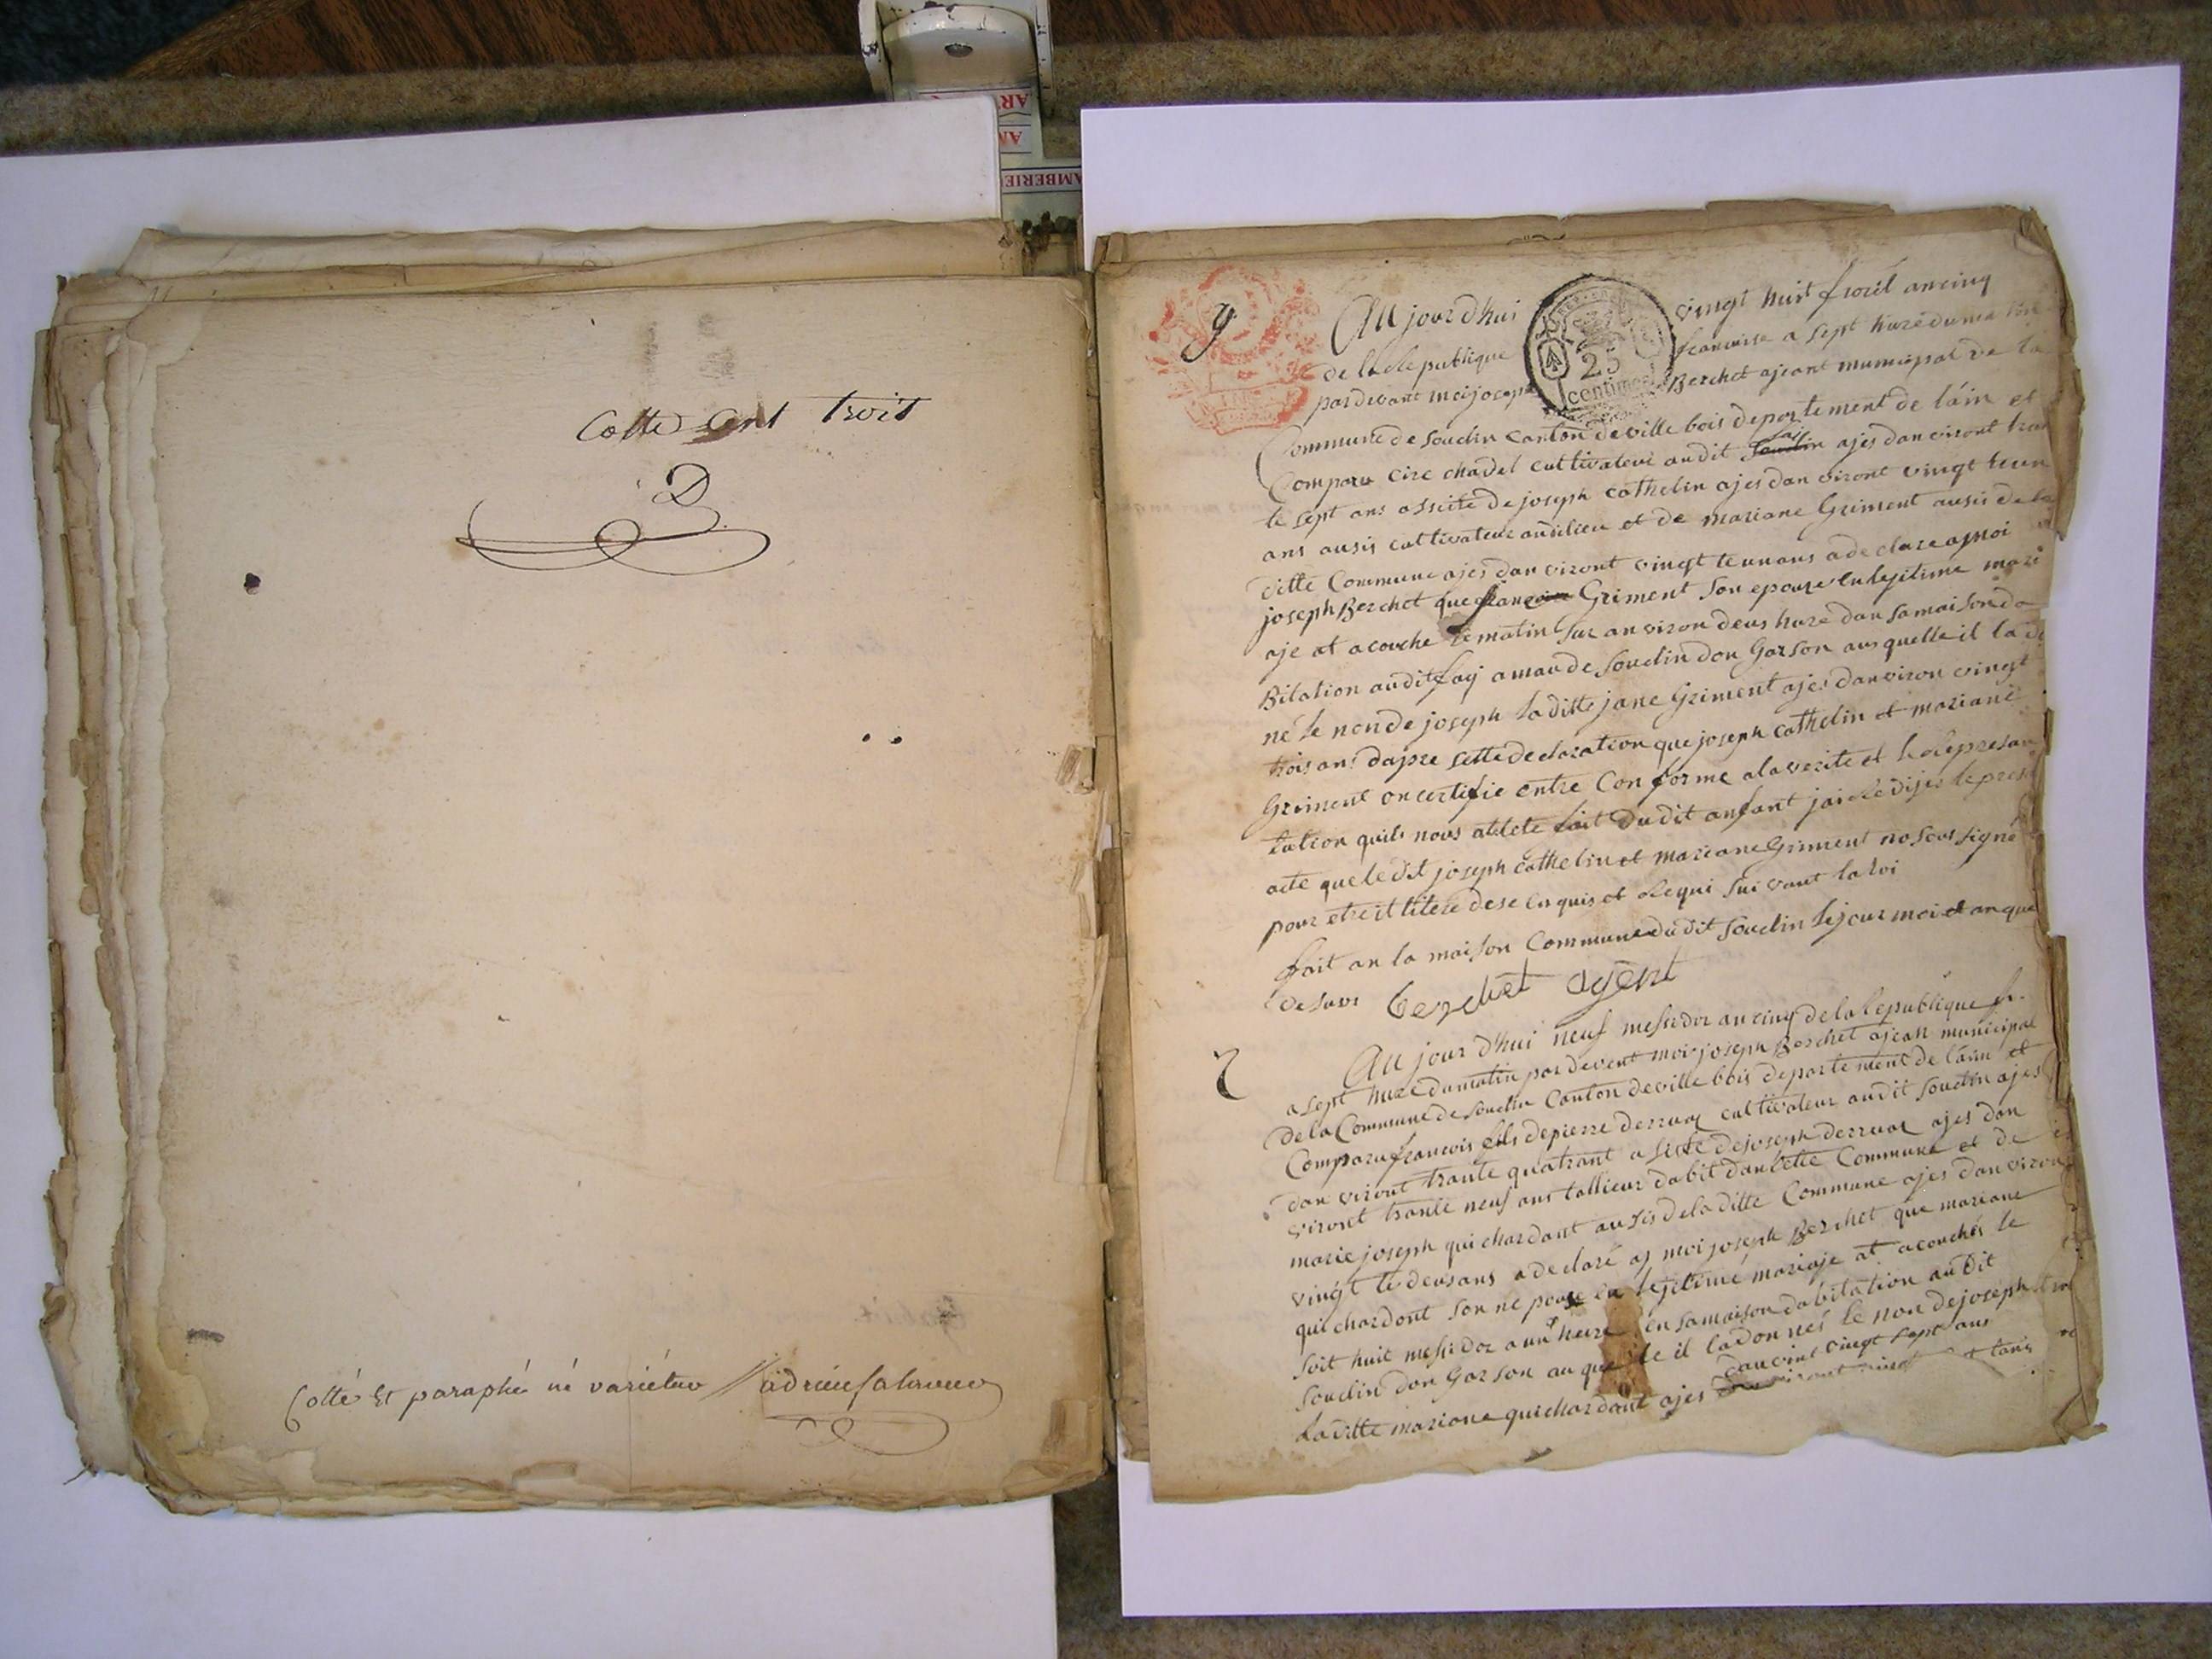 Cotté cent trois
Cotté Et paraphé né variétur
AR
AMBERIE
9
Au jourd'hui vingt huit floréal an cinq
de la Republique francaise a sept hure du ma
par devant moi joseph Berchet ajeant municipal de la
25 centimes
Commune de Souclin Canton de ville bois departement de l'áin et
Comparu cire chadel cultivateur au dit ajes dan viront tran
te sept ans assisté de joseph cathelin ajes dan viront vingt
ans ausis cultivateur audilieu et de mariane Griment ausis de la
ditte Commune ajes dan viront vingt te un ans a declare a moi
joseph Berchet que Griment son epouze en legitime mari
aje at acouche le matin sur an viron deus hure dan sa maison da
Bitation audit fay amau de Souclin don Garson auquelle il la do
né le non de joseph la ditte jane Griment ajes dan viron vingt
trois ans dapre sette declaration que joseph cathelin et mariane
Griment on certifie entre Con forme a la verite et la represan
tation quil nous at ete fait du dit anfant jai redijes le present
acte que le dit joseph cathelin et mariane Griment no sous signé
pour etre il litere de se en quis et requi sui vant la loi
fait an la maison Commune du dit Souclin le jour moi et an que
desus Berchet agent
Au jour d'hui neuf messidor an cinq de la Republique fr.
a sept hure du matin par devant moi joseph Berchet ajean municipal
de la Commune de Souclin Canton de ville bois departement de l'áin et
Comparu francois fils de pierre derruaz cultivateur au dit souclin ajes
dan viront trante quatrant a sisté de joseph derruaz ajes dan
viront trante neuf ans tallieur dabit dan sette Commune et de
marie joseph quichardant ausis de la ditte Commune ajes dan viron
vingt te deus ans a declaré a moi joseph Berchet que mariane
quichardont son ne pouse en lejitime mariaje at acouchés le
soit huit messidor a une heure en sa maison dabitation au Dit
Souclin don Garson au quelle il la donnés le non de joseph
La ditte mariane quichardant ajes danviront vingt sept ans